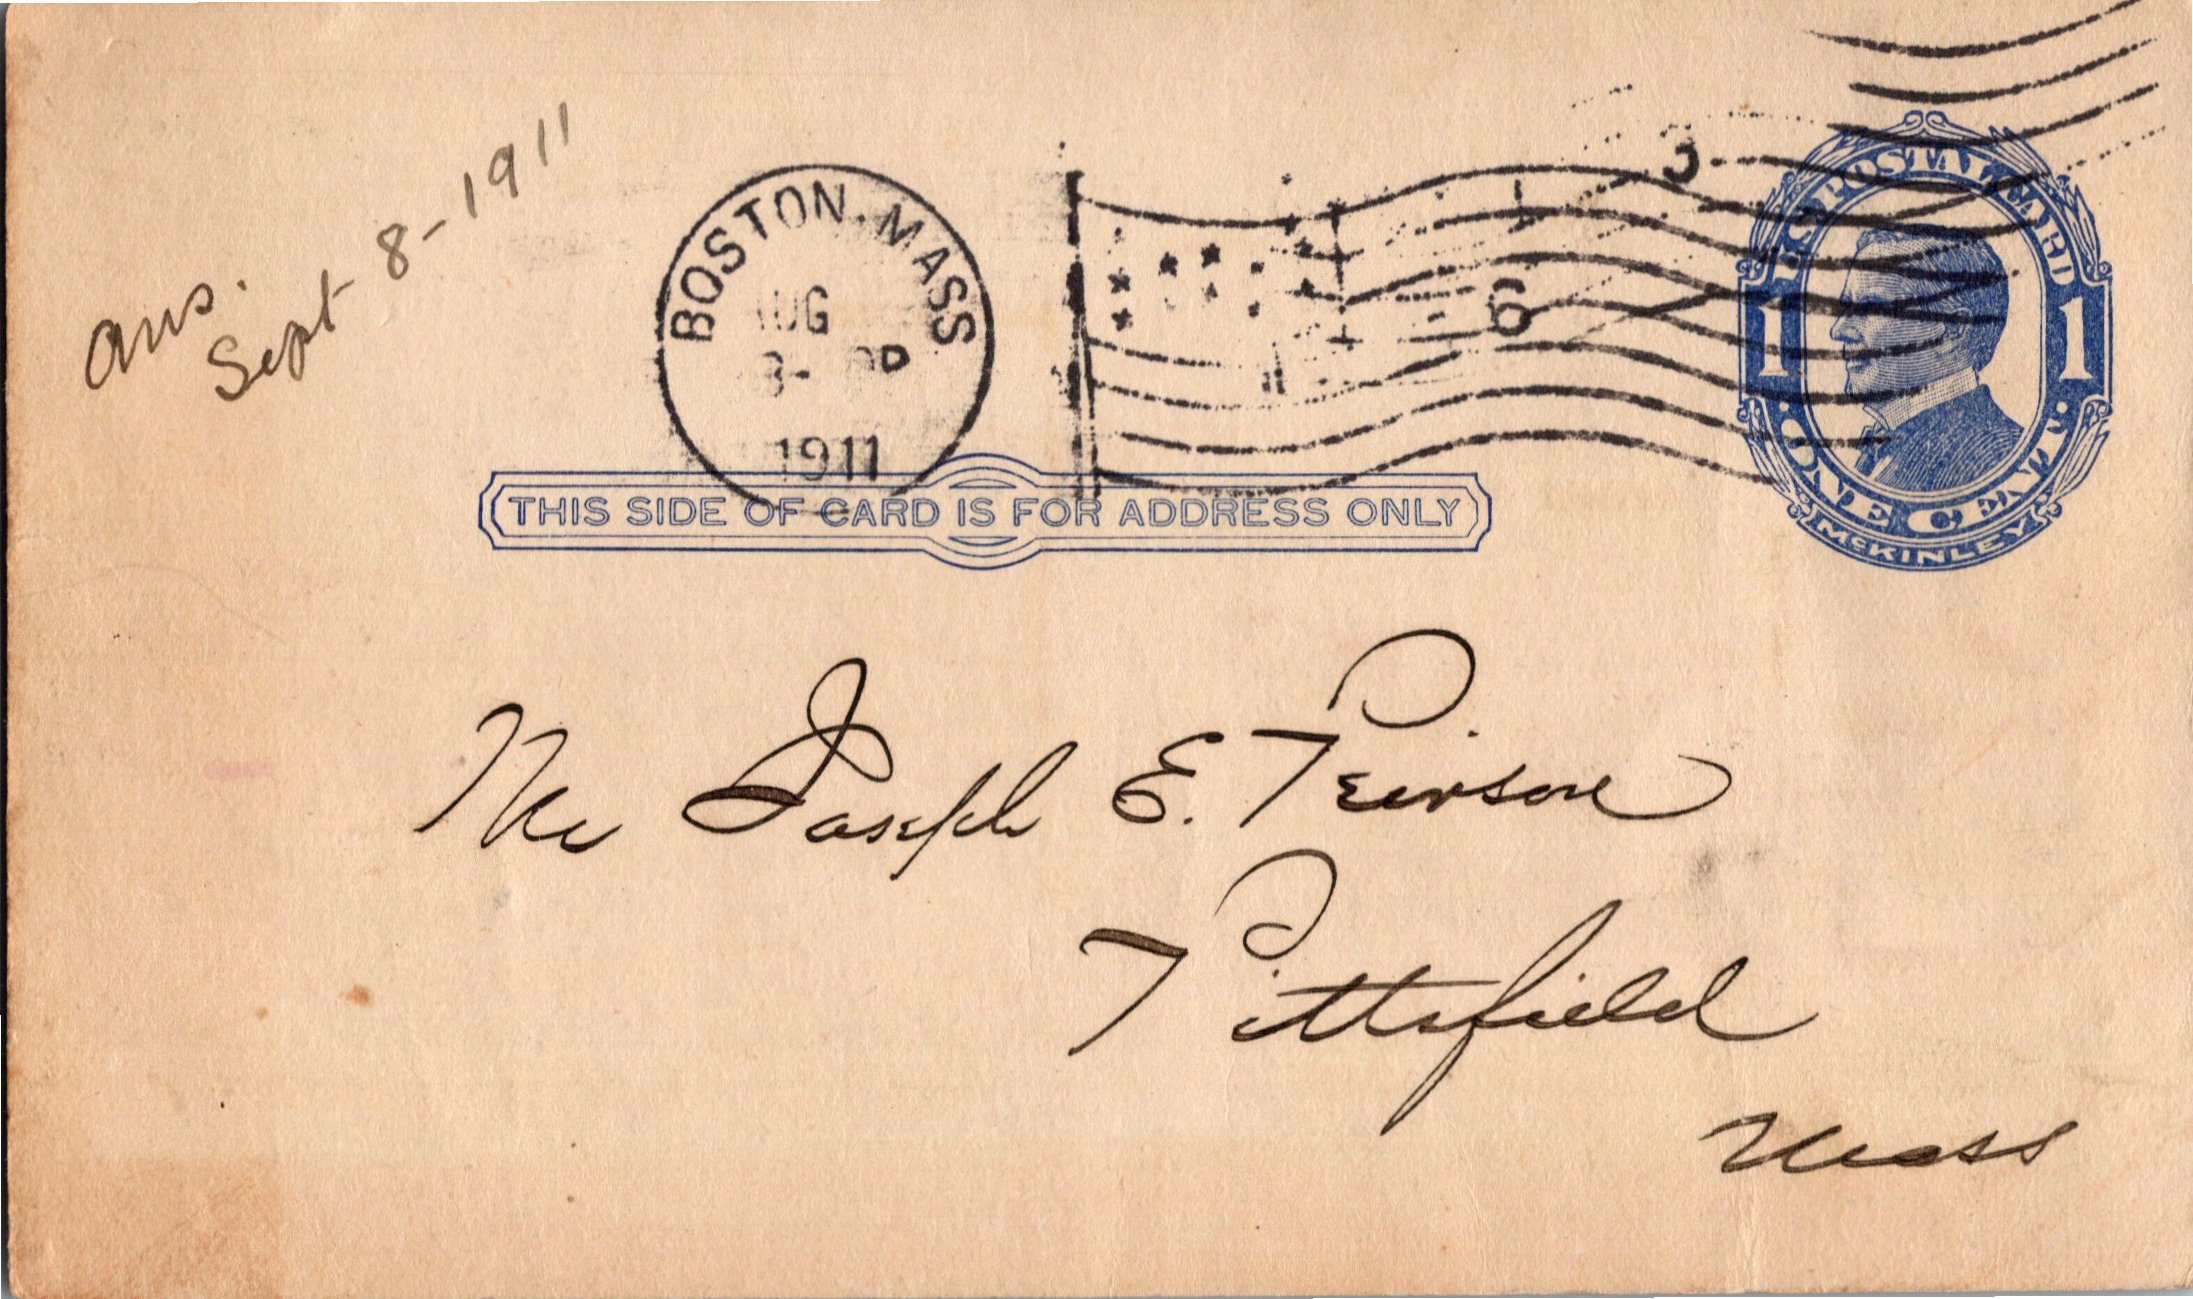 ans.
Sept 8-1911
BOSTON, MASS
AUG
1911
6
U.S. POSTAL CARD
1 1
· ONE CENT ·
McKINLEY
THIS SIDE OF CARD IS FOR ADDRESS ONLY
Mr Joseph E. Peirson
Pittsfield
Mass